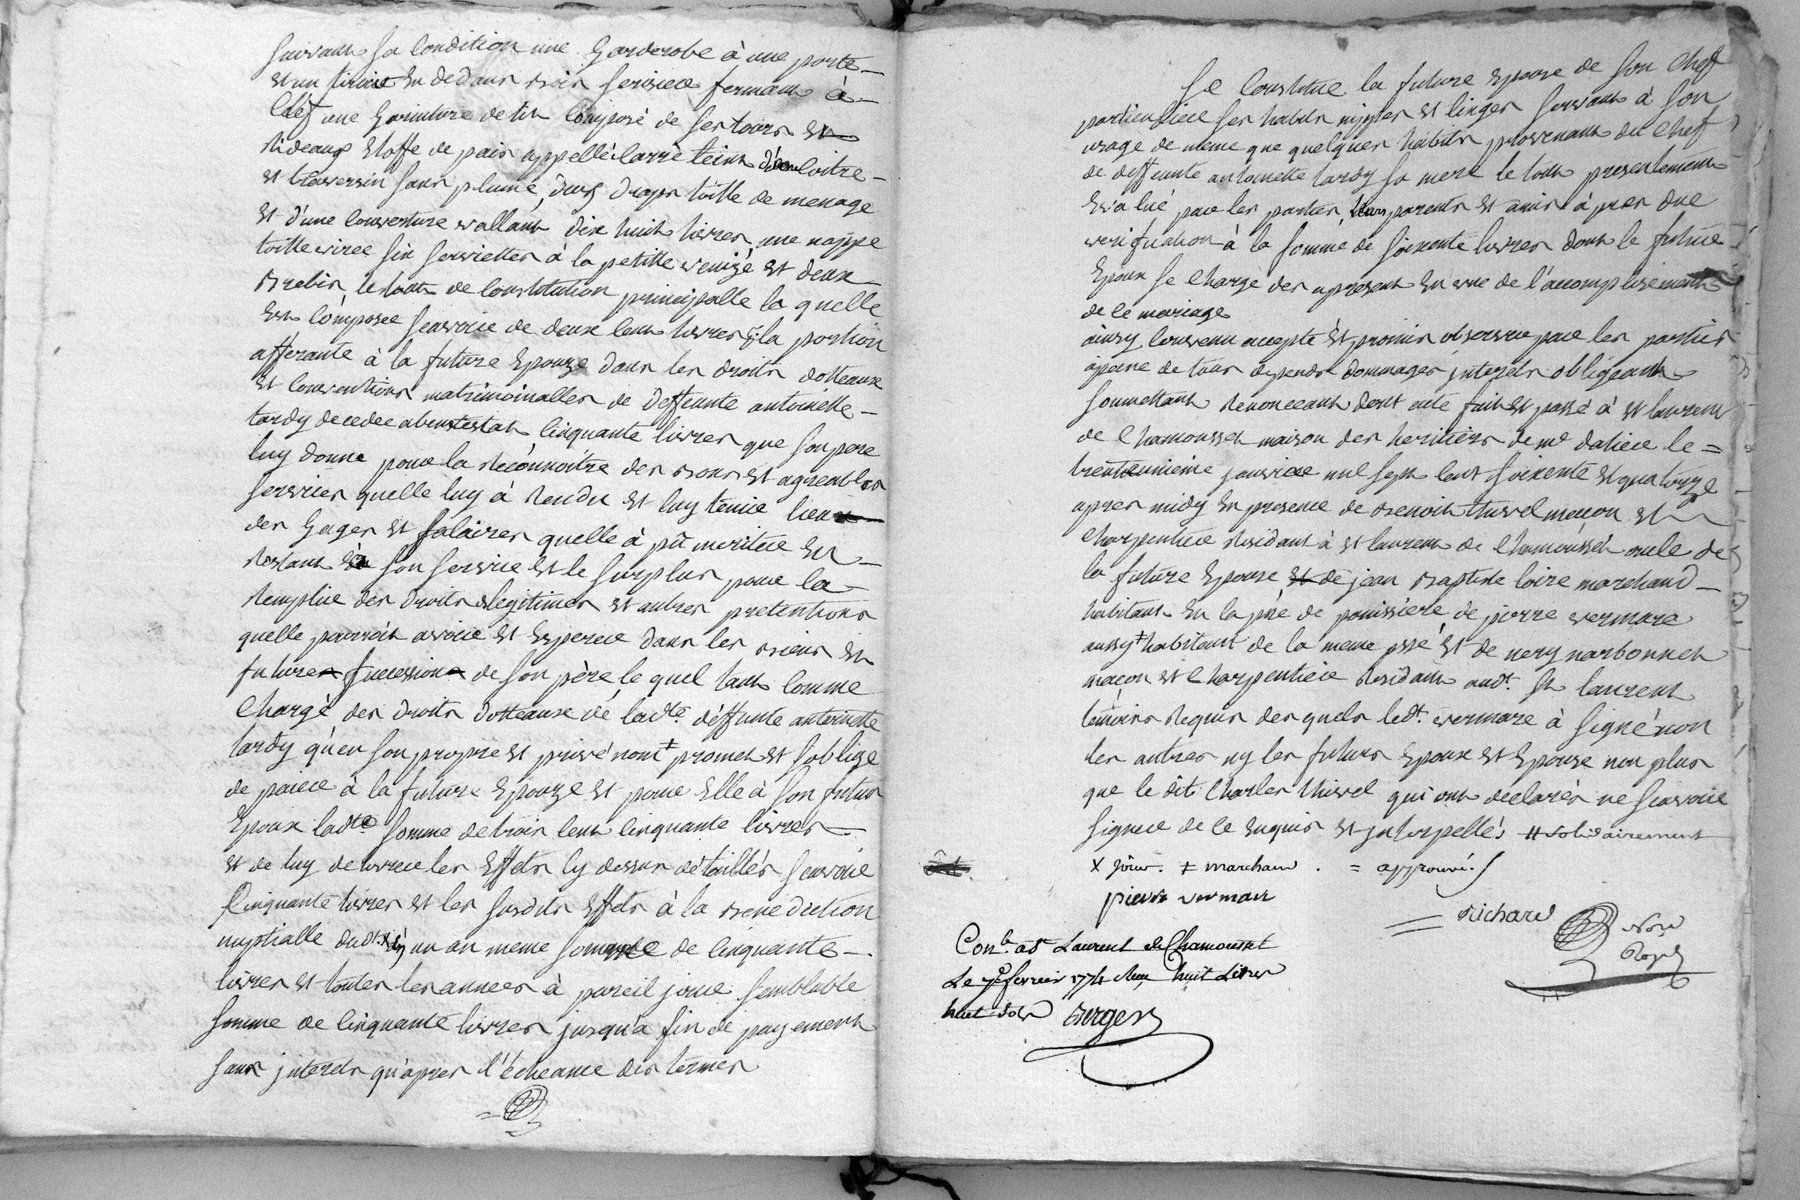 suivant sa condition une garderobe à une porte
et un tiroir en dedans bois serisier fermant à
clef une garniture de lit composé de ses tours et
rideaux etoffe de pais appellé carré teint d'une coitre
et traversin sans plume, deux draps toille de menage
et d'une couverture vallant dix huit livres, une nappe
toille siree six serviettes à la petitte venize et deux
brebis, le tout de constitution principalle la quelle
est composée scavoir de deux cent livres la portion
afferante à la future epouze dans les droits dotteaux
et conventions matrimoinalles de deffunte antoinette
tardy decedee abintestat cinquante livres que son pere
luy donne pour la reconnoitre des bons et agreables
services quelle luy à rendu et luy tenir lieu
des gages et salaires quelle à pû meriter en
restant à son service et le surplus pour la
remplir des droits legitimes et autres pretentions
quelle pourroit avoir et esperer dans les biens et
future succession de son père le quel tant comme
chargé des droits dotteaux de ladte deffunte antoinette
tardy qu'en son propre et privé nom ‡ promet et s'oblige
de paier à la future epouze et pour elle à son futur
epoux ladte somme de trois cent cinquante livres
et de luy delivrer les effets cy dessus détaillés scavoir
cinquante livres et les susdits effets à la benediction
nuptialle dudt x en un an meme somme de cinquante
livres et toutes les annees à pareil jour semblable
somme de cinquante livres jusqu'a fin de payement
sans interets qu'apres l'écheance des termes
Se constitue la future epouze de son chef
particulier ses habits nippes et linges servant à son
usage de meme que quelques habits provenant du chef
de deffunte antoinette tardy sa mere le tout presentement
evalué par les parties, leurs parents et amis à pres due
verification à la somme de soixente livres dont le futur
epoux se charge des apresent en vue de l'accomplisement
de ce mariage
ainsy convenu accepté et promis observer par les parties
apeine de tous depends dommages interets obligeant
soumettant renonceant dont acte fait et passé à st laurent
de chamousset maison des heritiers de me dalier le =
trenteunieme janvier mil sept cent soixente et quatorze
apres midy en presence de benoit thivel maçon et
charpentier residant à st laurent de chamousset oncle de
la future epouse et de jean baptiste loire marchand
habitant en la psse de pouissiere, de pierre vermare
aussy ‡ habitant de la meme psse et de nery narbonnet
maçon et charpentier residant audt. st laurent
temoins requis desquels ledt. vermare à signé non
les autres ny les futurs epoux et epouze non plus
que le dit charles thivel qui ont declarés ne scavoir
signer de ce enquis et interpellés # solidairement
x jour. ‡ marchand. = approuvé.
pierre vermare
Richard
Conlé à St Laurent de Chamousset
Le 7e fevrier 1774 Reçu huit Livres
huit sols